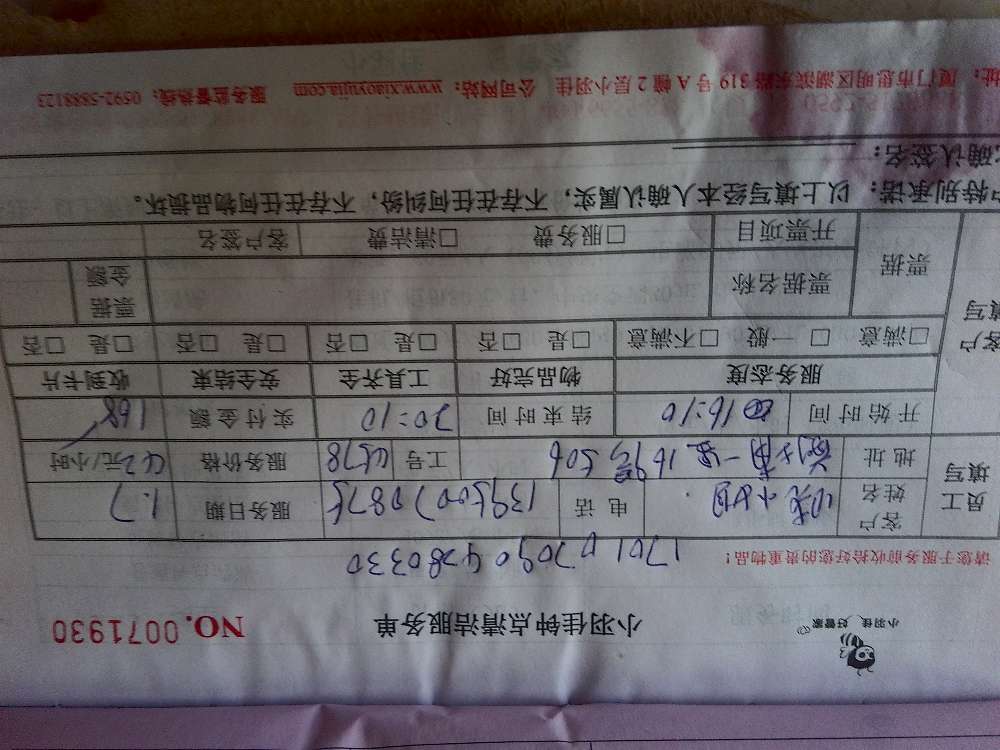 小羽佳 好管家
小羽佳钟点清洁服务单 NO. 0071930
请您于服务前收拾好您的贵重物品！
1701070904280330
员工填写 客户姓名 小姐 电话 13950010875 服务日期 1.7
地址 一里16号506 工号 4578 服务价格 42元/小时
开始时间 16:10 结束时间 20:10 实付金额 168
客户填写 服务态度 物品完好 工具齐全 安全结束 收到卡片
□满意 □一般 □不满意 □是 □否 □是 □否 □是 □否 □是 □否
票据 票据名称 票据金额
开票项目 □服务费 □清洁费 客户签名
特别承诺：以上填写经本人确认属实，不存在任何纠纷，不存在任何物品损坏。
确认签名：
址：厦门市思明区湖滨东路319号A幢2层小羽佳 公司网站：www.xiaoyujia.com 服务监督热线：0592-5888123